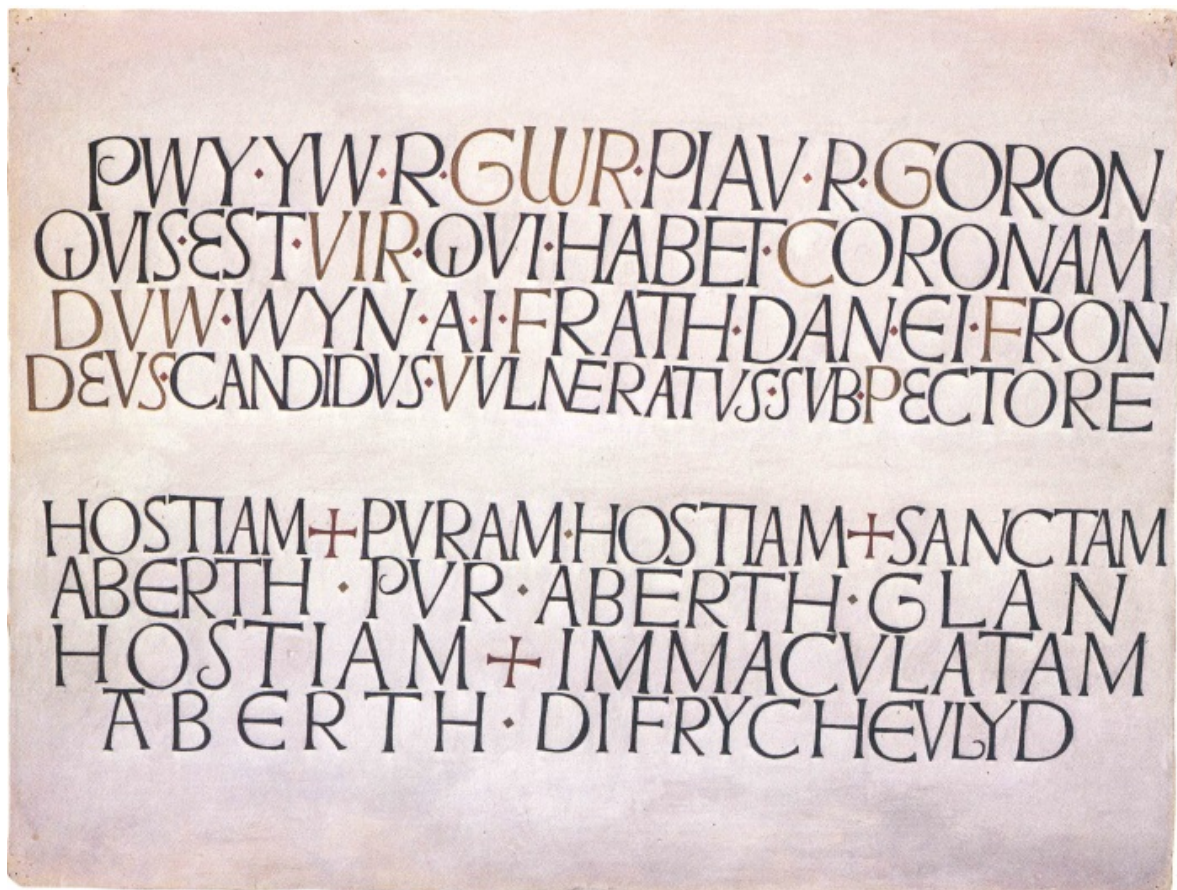 PWY·YW·R·GWR·PIAV·R·GORON
QVIS·EST·VIR·QVI·HABET·CORONAM
DVW·WYN·A·I·FRATH·DAN·EI·FRON
DEVS·CANDIDVS·VVLNERATVS·SVB·PECTORE
HOSTIAM+PVRAM·HOSTIAM+SANCTAM
ABERTH·PVR·ABERTH·GLAN
HOSTIAM+IMMACVLATAM
ABERTH·DIFRYCHEVLYD